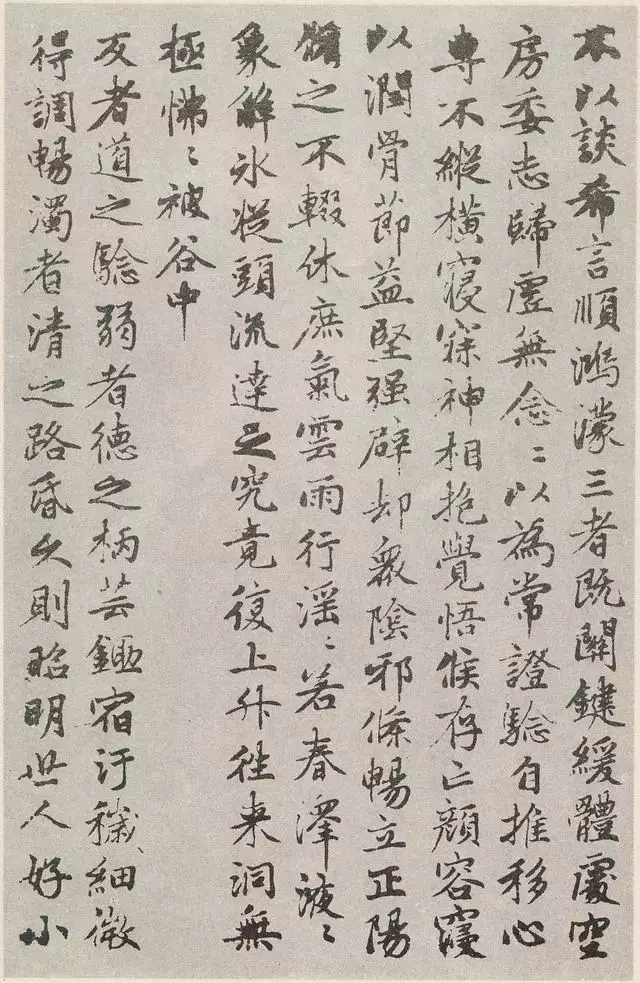 不以談希言順鴻濛三者既關鍵緩體處空
房委志歸虛無念〻以為常證驗自推移心
專不縱橫寢寐神相抱覺悟候存亡顏容寖
以潤骨節益堅强辟却衆陰邪條暢立正陽
脩之不輟休庶氣雲雨行滛〻若春澤液〻
象解氷從頭流達之究竟復上升往來洞無
極怫〻被谷中
反者道之驗弱者德之柄芸鋤宿汙穢細微
得調暢濁者清之路昏久則昭明世人好小